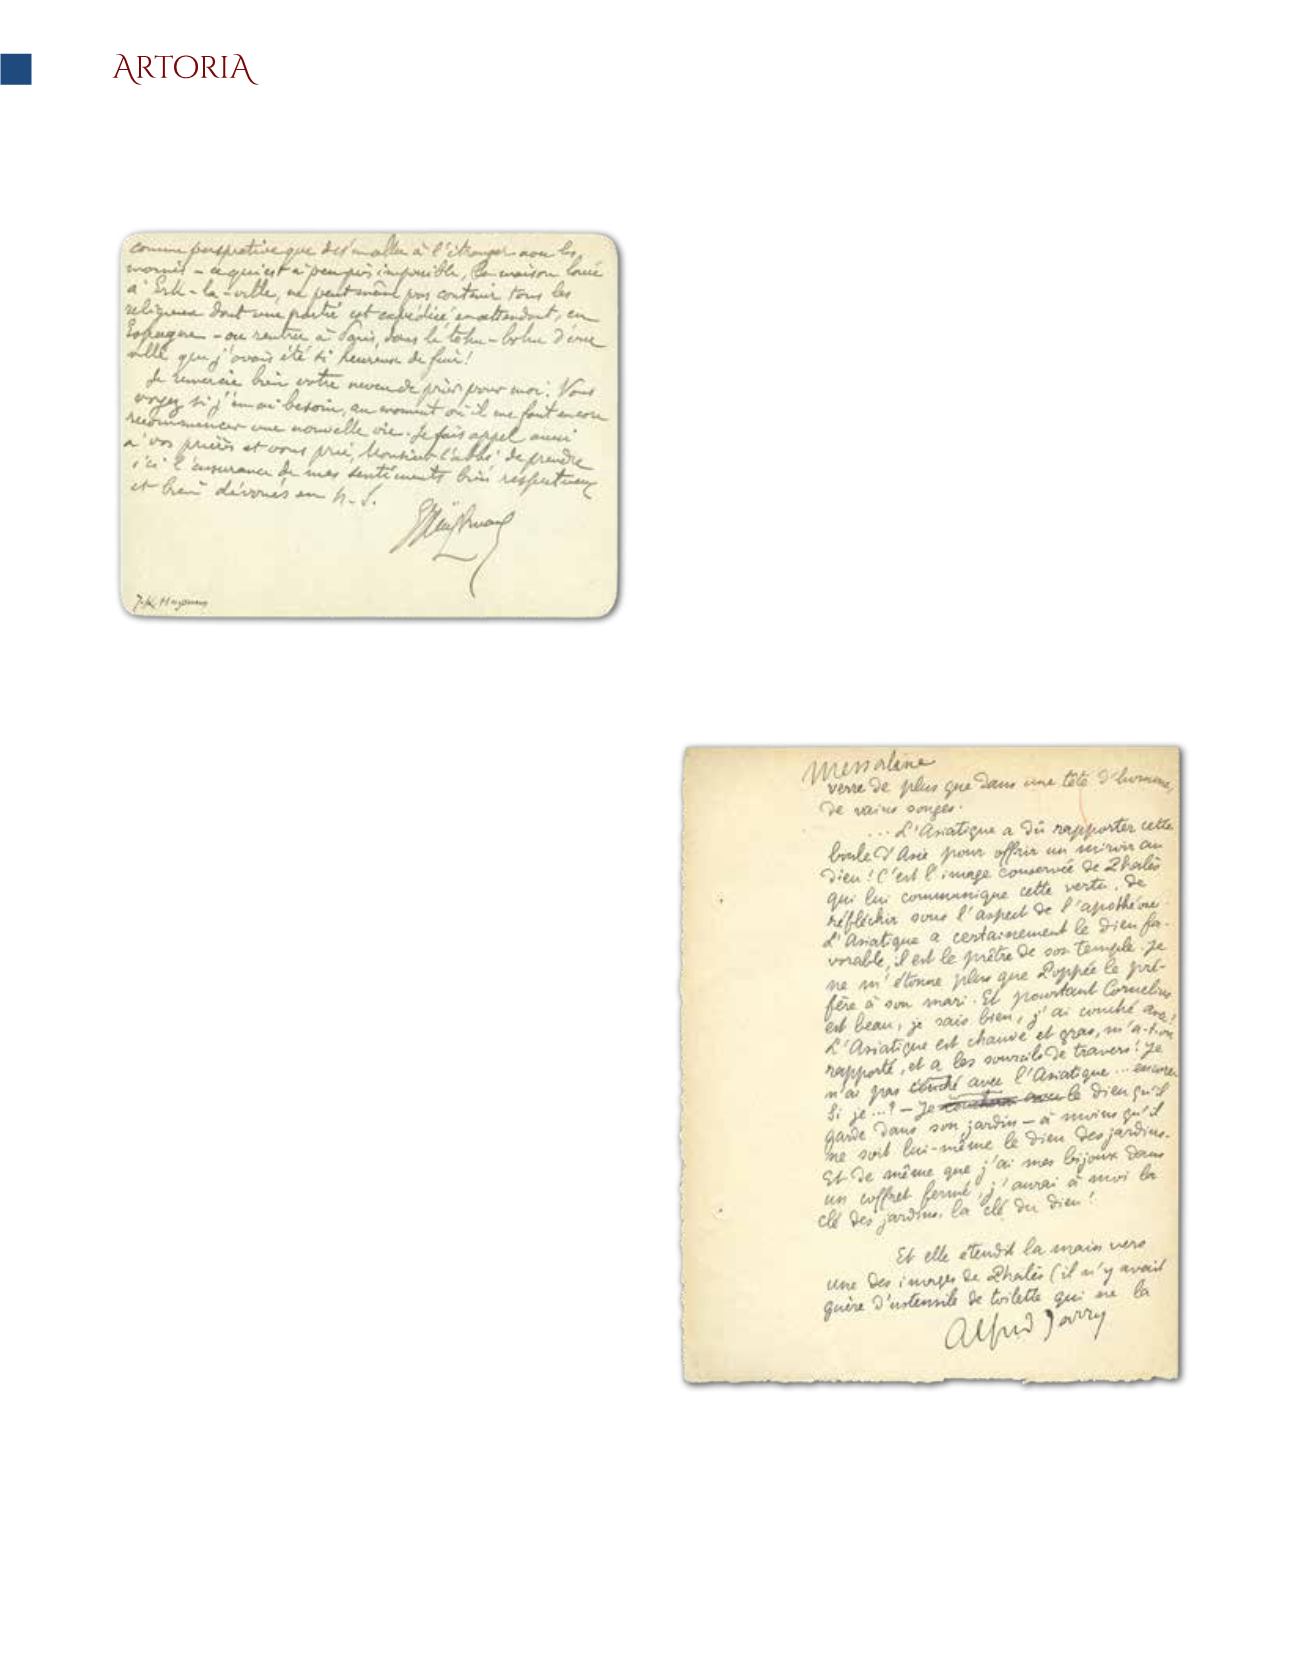 ARTORIA
comme perspective que de m'en aller à l'étranger avec les
moines – ce qui est à peu près impossible, la maison louée
à Esk-la-ville, ne peut même pas contenir tous les
religieux dont une partie est expédiée en attendant, en
Espagne – ou rentrer à Paris, dans le tohu-bohu d'une
ville que j'avais été si heureux de fuir!
Je remercie bien votre neveu de prier pour moi. Vous
voyez si j'en ai besoin, au moment où il me faut encore
recommencer une nouvelle vie. Je fais appel aussi
à vos prières et vous prie, Monsieur l'abbé de prendre
ici l'assurance de mes sentiments bien respectueux
et bien dévoués en N. S.
J.K. Huysmans
Messaline
verre de plus que dans une tête d'homme,
de vains songes.
... L'Asiatique a dû rapporter cette
boule d'Asie pour offrir un miroir au
dieu! C'est l'image conservée de Phalès
qui lui communique cette vertu, de
réfléchir sous l'aspect de l'apothéose.
L'Asiatique a certainement le dieu fa-
vorable, il est le prêtre de son temple. Je
ne m'étonne plus que Poppée le pré-
fère à son mari. Et pourtant Cornelius
est beau, je sais bien, j'ai couché avec!
L'Asiatique est chauve et gras, m'a-t-on
rapporté, et a les sourcils de travers! Je
n'ai pas couché avec l'Asiatique ... encore.
Si je ...? – Je le dieu qu'il
garde dans son jardin – à moins qu'il
ne soit lui-même le dieu des jardins.
Et de même que j'ai mes bijoux dans
un coffret fermé, j'aurai à moi la
clé des jardins, la clé du dieu!
Et elle étendit la main vers
une des images de Phalès (il n'y avait
guère d'ustensile de toilette qui ne la
Alfred Jarry